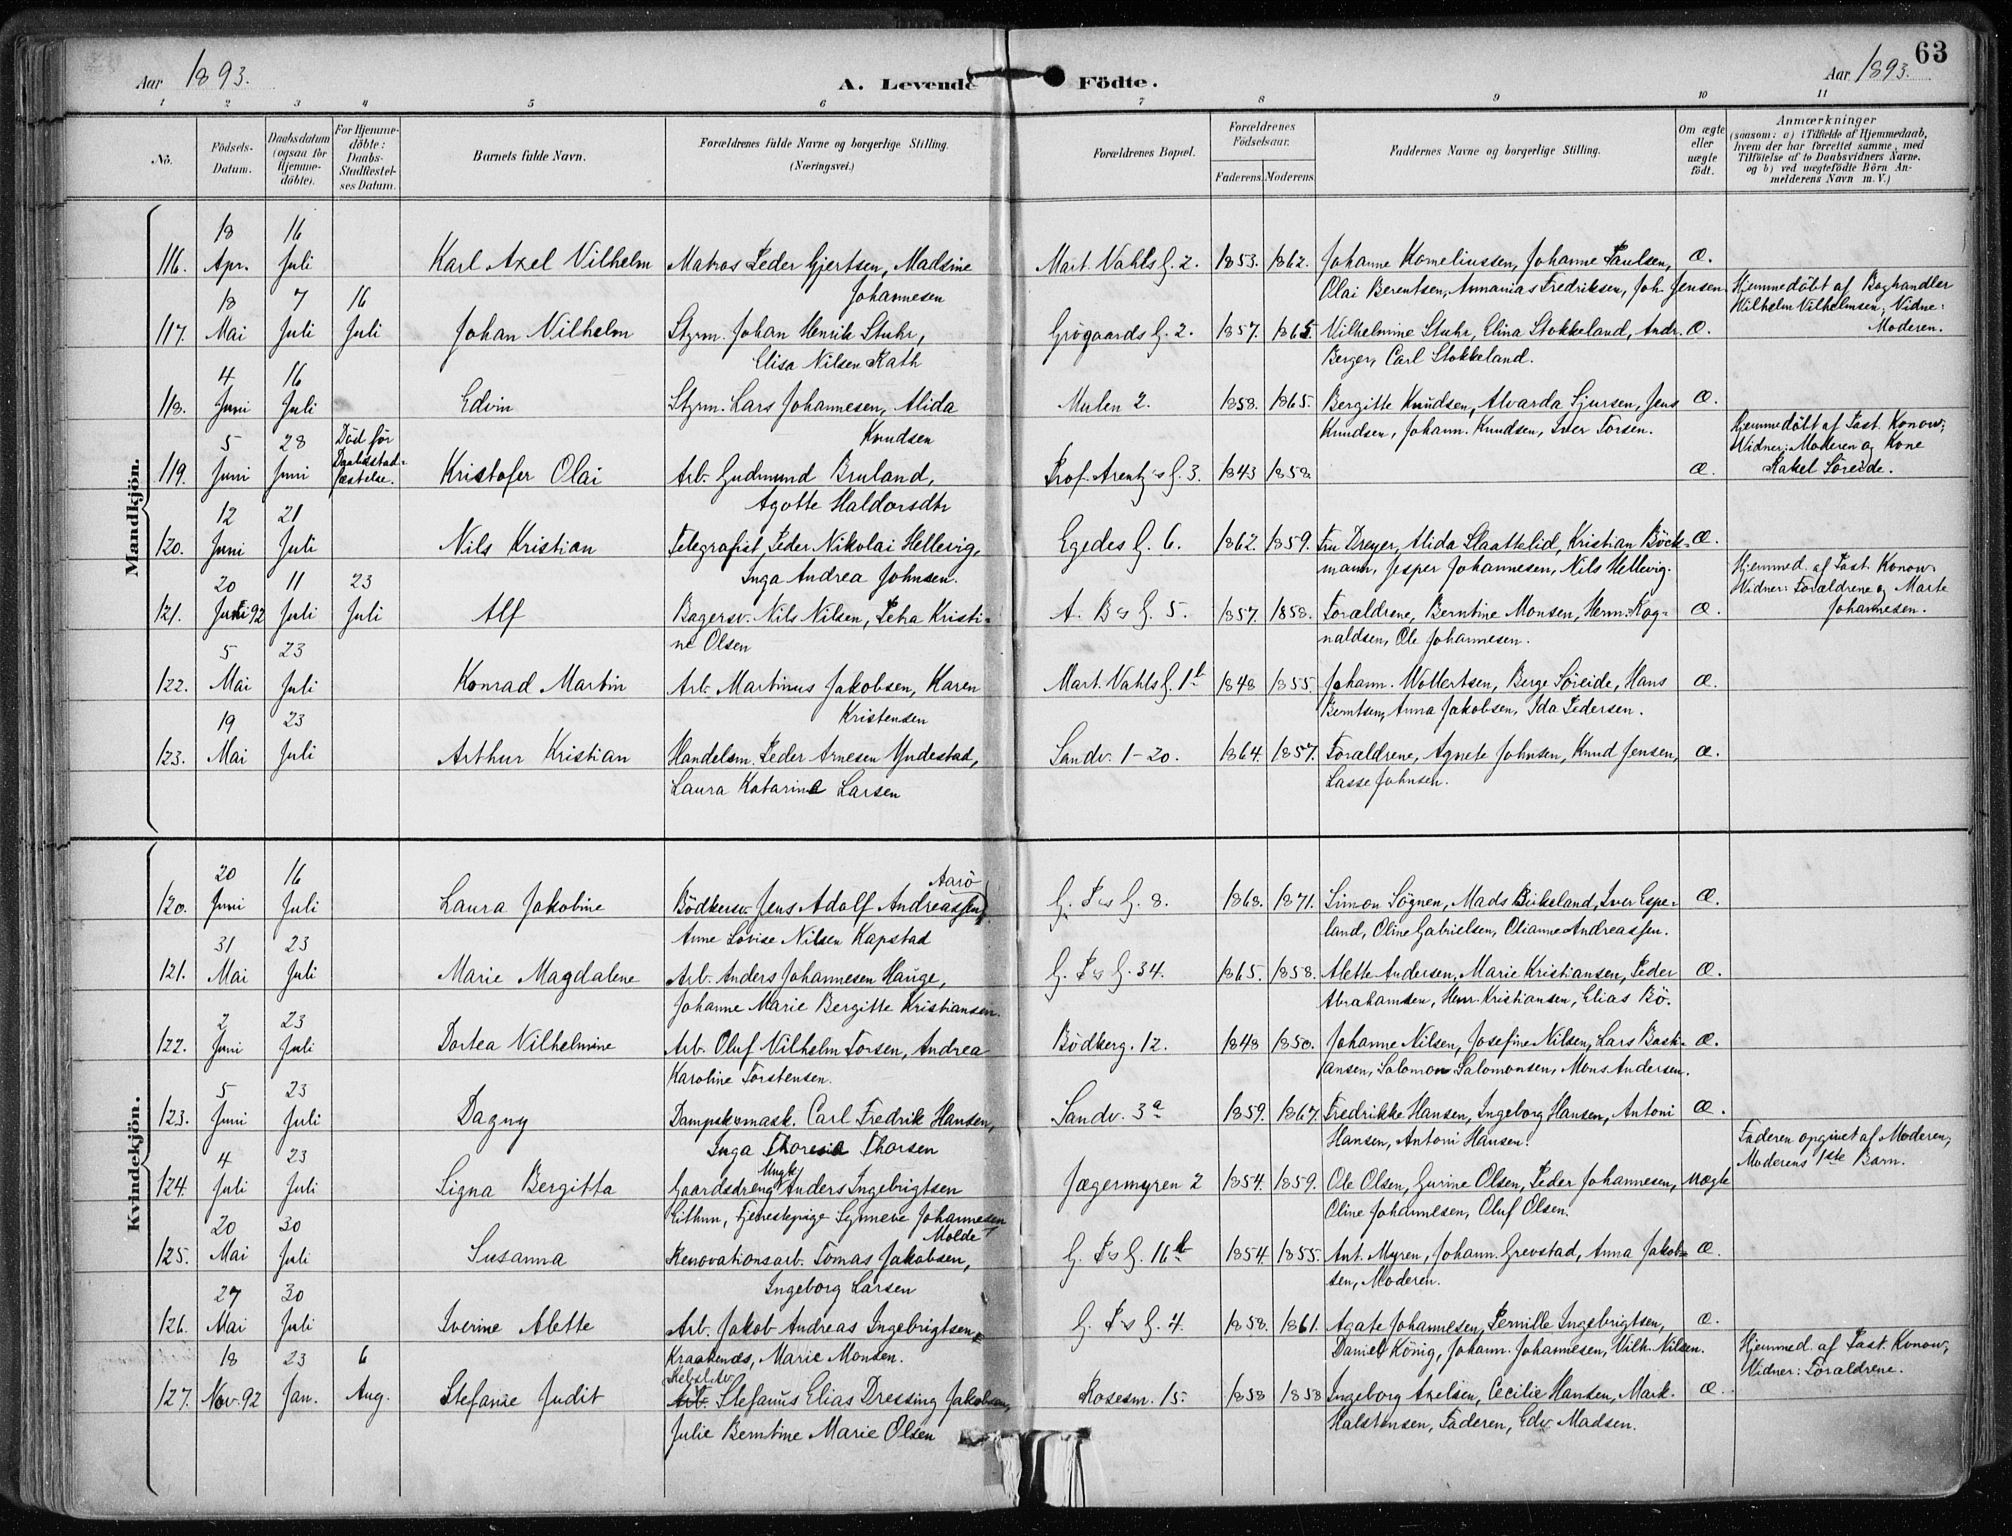 63
Aar 1893.
A. Levende Födte.
Aar 1893.
1 2 3 4 5 6 7 8 9 10 11
No.
Födsels-
Datum.
Daabsdatum
(ogsaa for
Hjemme-
döbte).
For Hjemme-
döbte:
Daabs-
Stadfæstel-
ses Datum.
Barnets fulde Navn.
Forældrenes fulde Navne og borgerlige Stilling.
(Næringsvei.)
Forældrenes Bopæl.
Forældrenes
Födselsaar.
Faderens. Moderens.
Faddernes Navne og borgerlige Stilling.
Om ægte
eller
uægte
födt.
Anmærkninger
(saasom: a) i Tilfælde af Hjemmedaab,
hvem der har forrettet samme, med
Tilföielse af to Daabsvidners Navne.
og b) ved uægtefödte Börn An-
melderens Navn m. V.)
Mandkjön.
18 16
116. Apr. Juli Karl Axel Vilhelm Matros Peder Gjertsen, Madsine Mart. Vahls G. 2. 1853. 1862. Johanne Korneliussen, Johanne Paulsen, Æ.
Johannesen Olai Berentsen, Annanias Fredriksen, Joh. Jensen. Hjemmedöbt af Boghandler
18 7 16 Vilhelm Vilhelmsen; Vidne:
117. Mai Juli Juli Johan Vilhelm Styrm. Johan Henrik Stuhr, Grögaards G. 2. 1857. 1865. Vilhelmine Stuhr, Elina Stokkeland, Andr. Æ. Moderen.
Elisa Nilsen Rath Berger, Carl Stokkeland.
4 16
118. Juni Juli Edvin Styrm. Lars Johannesen, Alida Mulen 2. 1858. 1865. Bergitte Knudsen, Alvarda Sjursen, Jens Æ.
Knudsen Knudsen, Johann. Knudsen, Iver Torsen. Hjemmedöbt af Past. Konow;
5 28 Död før Vidner: Moderen og Kone
119. Juni Juni Daabsstad-
fæstelse. Kristofer Olai Arb. Gudmund Bruland, Prof. Arentz's G. 3. 1843 1858. Æ. Rakel Söreide.
Agotte Haldorsdtr
12 21
120. Juni Juli Nils Kristian Telegrafist Peder Nikolai Hellevig, Egedes G. 6. 1862. 1859. Fru Dreyer, Alida Slaattelid, Kristian Böck- Æ.
Inga Andrea Johnsen. mann, Jesper Johannesen, Nils Hellevig. Hjemmed. af Past. Konow.
20 11 23 Vidner: Forældrene og Marte
121. 92 Juli Juli Alf Bagersv. Nils Nilsen, Petra Kristi- A. B s G. 5. 1857. 1858. Forældrene, Berntine Monsen, Herm. Rag- Æ. Johannesen.
ne Olsen naldsen, Ole Johannesen.
5 23
122. Mai Juli Konrad Martin Arb. Martinus Jakobsen, Karen Mart. Vahls G. 1b 1848 1855. Johann. Wollertsen, Berge Söreide, Hans Æ.
Kristensen Berntsen, Anna Jakobsen, Ida Pedersen.
19 23
123. Mai Juli Arthur Kristian Handelsm. Peder Arnesen Yndestad, Sandv. 1-20. 1864. 1857. Forældrene, Agnete Johnsen, Knud Jensen, Æ.
Laura Katarina Larsen Lasse Johnsen.
Kvindekjön.
20 16 Aarö
120. Juni Juli Laura Jakobine Bödkersv. Jens Adolf Andreassen, G. P s G. 8. 1868. 1871. Simon Sögnen, Mads Birkeland, Iver Espe- Æ.
Anne Lovise Nilsen Kapstad land, Oline Gabrielsen, Olianne Andreassen.
31 23
121. Mai Juli Marie Magdalene Arb. Anders Johannesen Hauge, G. P s G. 34. 1865. 1858. Alette Andersen, Marie Kristiansen, Peder Æ.
Johanne Marie Bergitte Kristiansen. Abrahamsen, Henr. Kristiansen, Elias Bö.
2 23
122. Juni Juli Dortea Vilhelmine Arb. Oluf Vilhelm Torsen, Andrea Bödkerg. 12. 1848 1850. Johanne Nilsen, Josefine Nilsen, Lars Bast- Æ.
Karoline Torstensen. iansen, Salomon Salomonsen, Mons Andersen.
5 23
123. Juni Juli Dagny Dampskmask. Carl Fredrik Hansen, Sandv. 3a 1859. 1867. Fredrikke Hansen, Ingeborg Hansen, Antoni Æ.
Inga Theresia Thorsen Hansen, Antoni Hansen. Faderen opgivet af Moderen,
4 23 Ungk. Moderens 1ste Barn.
124. Juli Juli Signa Bergitta Gaardsdreng Anders Ingebrigtsen Jægermyren 2 1854. 1859. Ole Olsen, Gurine Olsen, Peder Johannesen, Uægte
Eithun, Tjenestepige Synneve Johannesen Oline Johannesen, Oluf Olsen.
20 30 Molde
125. Mai Juli Susanna Renovationsarb. Tomas Jakobsen, G. P s G. 16b 1854. 1855. Ant. Myren, Johann. Grevstad, Anna Jakob- Æ.
Ingeborg Larsen sen, Moderen.
27 30
126. Mai Juli Iverine Alette Arb. Jakob Andreas Ingebrigtsen, G. P s G. 4. 1858. 1861. Agate Johannesen, Pernille Ingebrigtsen, Æ.
Kraakenæs, Marie Monsen. Daniel König, Johann. Johannesen, Vilh. Nilsen. Hjemmed. af Past. Konow,
18 23 6 Vidner: Forældrene.
127. Nov. 92 Jan. Aug. Stefanie Judit Arb. Stefanus Elias Dressing Jakobsen, Rosesm. 15. 1858 1858 Ingeborg Axelsen, Cecilie Hansen, Mark. Æ.
Julie Berntine Marie Olsen Halstensen, Faderen, Edv. Madsen.